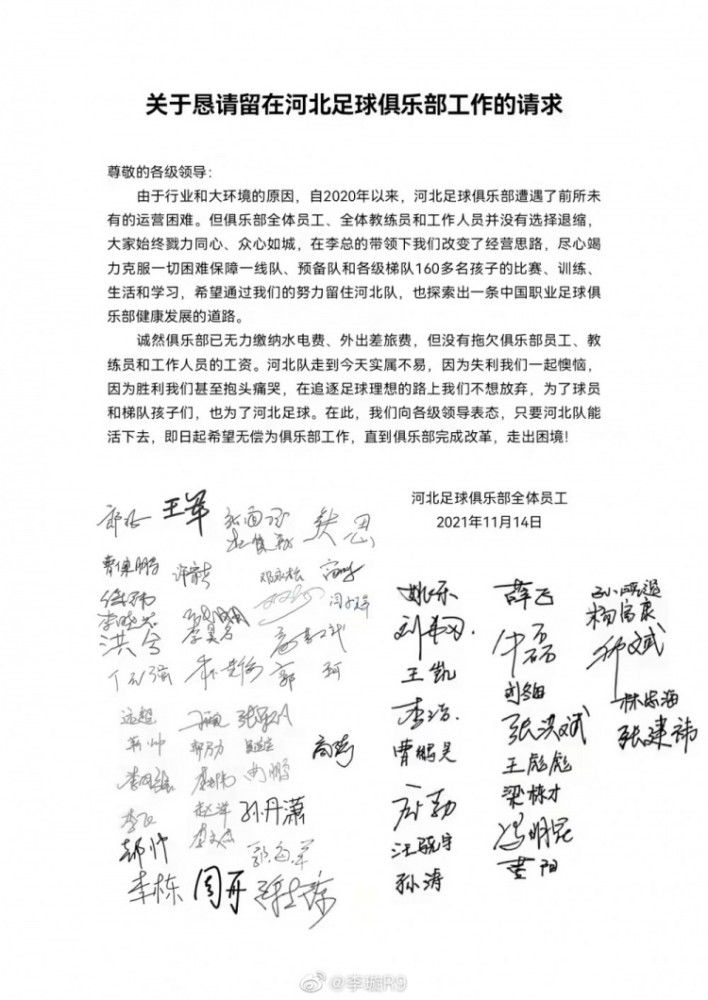 关于恳请留在河北足球俱乐部工作的请求
尊敬的各级领导：
由于行业和大环境的原因，自2020年以来，河北足球俱乐部遭遇了前所未
有的运营困难。但俱乐部全体员工、全体教练员和工作人员并没有选择退缩，
大家始终戮力同心、众心如城，在李总的带领下我们改变了经营思路，尽心竭
力克服一切困难保障一线队、预备队和各级梯队160多名孩子的比赛、训练、
生活和学习，希望通过我们的努力留住河北队，也探索出一条中国职业足球俱
乐部健康发展的道路。
诚然俱乐部已无力缴纳水电费、外出差旅费，但没有拖欠俱乐部员工、教
练员和工作人员的工资。河北队走到今天实属不易，因为失利我们一起懊恼，
因为胜利我们甚至抱头痛哭，在追逐足球理想的路上我们不想放弃，为了球员
和梯队孩子们，也为了河北足球。在此，我们向各级领导表态，只要河北队能
活下去，即日起希望无偿为俱乐部工作，直到俱乐部完成改革，走出困境！
河北足球俱乐部全体员工
2021年11月14日
王军
曹保鹏
李晓光
洪兮
郭 珂
远超
孙丹潇
郝帅
李栋 周开
姚乐
王凯
李浩
曹鹏昊
汪骁宇
孙涛
薛飞
牛磊
张洪斌
王彪彪
梁栋才
冯明昆
黄阳
杨富康
林忠海
张建祎
@李璇R9